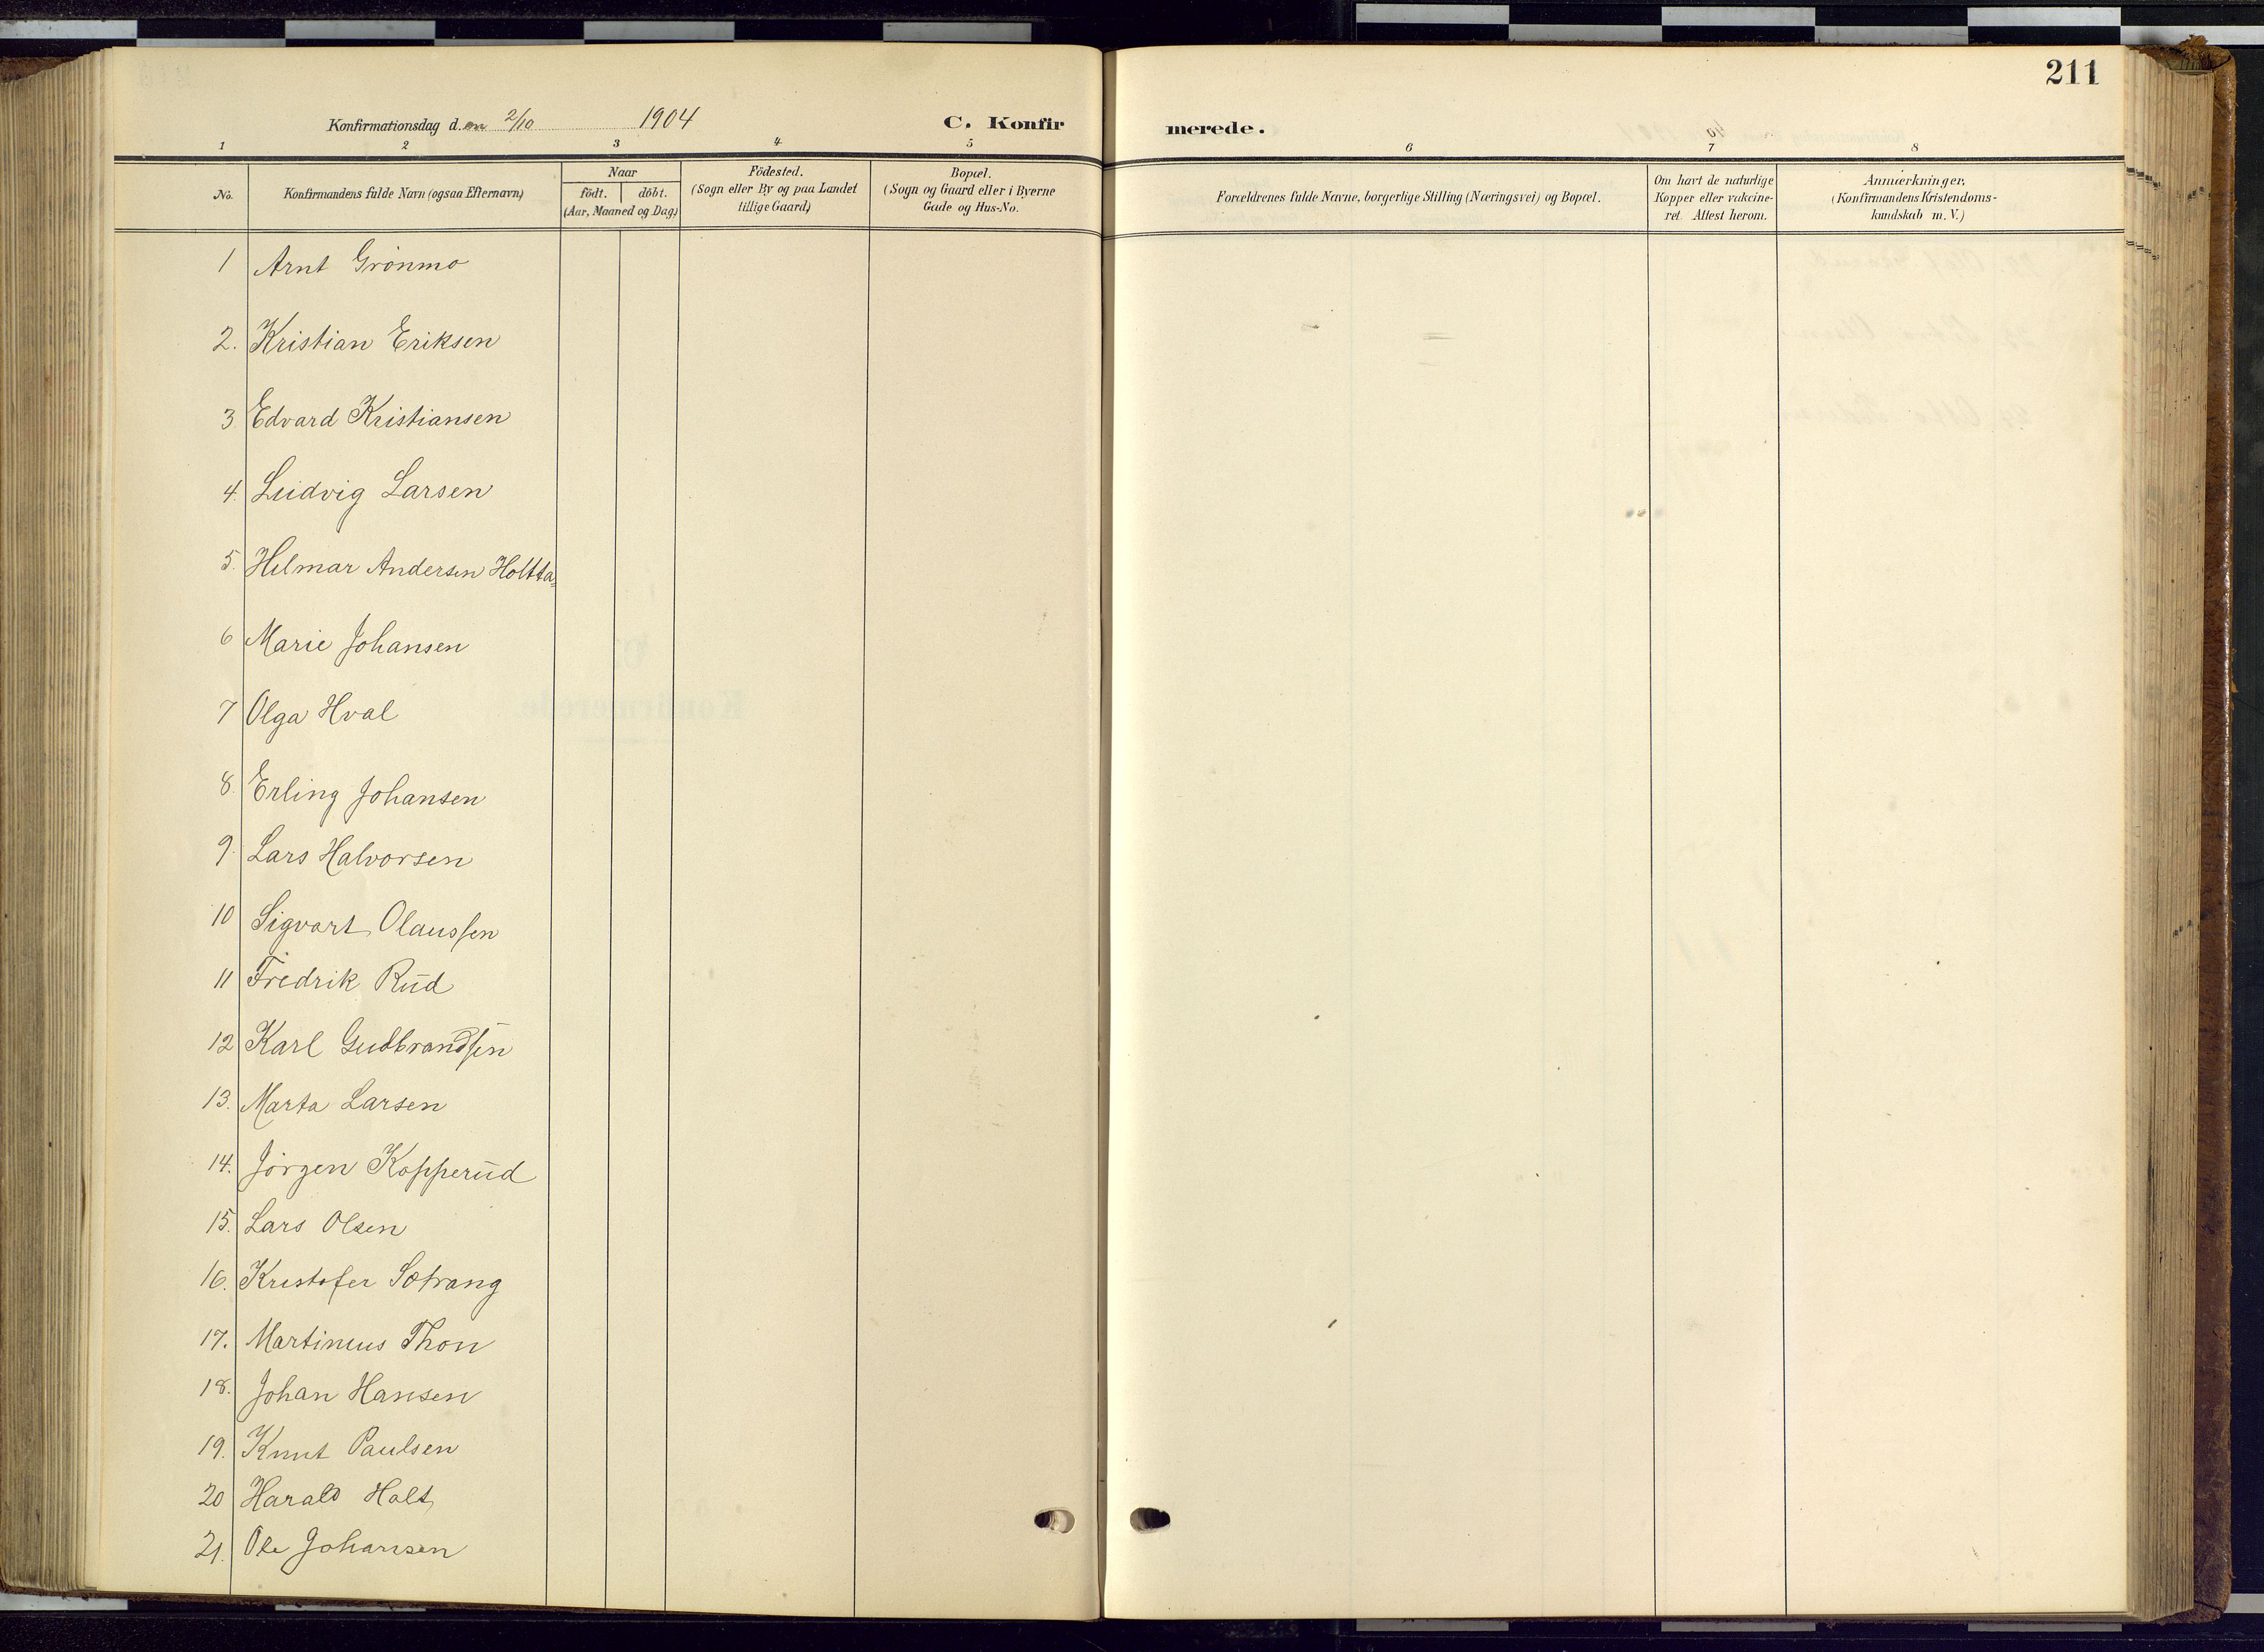 211
Konfirmationsdag den 2/10 1904
C. Konfirmerede.
1 2 3 4 5 6 7 8
No.
Konfirmandens fulde Navn (ogsaa Efternavn)
Naar
født. døbt.
(Aar, Maaned og Dag)
Födested.
(Sogn eller By og paa Landet
tillige Gaard)
Bopæl.
(Sogn og Gaard eller i Byerne
Gade og Hus-No.
Forældrenes fulde Navne, borgerlige Stilling (Næringsvei) og Bopæl.
Om havt de naturlige
Kopper eller vakcine-
ret. Attest herom.
Anmærkninger.
(Konfirmandens Kristendoms-
kundskab m. V.)
1 Arnt Grönmo
2. Kristian Eriksen
3. Edvard Kristiansen
4. Ludvig Larsen
5. Hilmar Andersen Holtta
6 Marie Johansen
7 Olga Hval
8. Erling Johansen
9. Lars Halvorsen
10 Sigvart Olaussen
11 Fredrik Rud
12 Karl Gudbrandsen
13. Marta Larsen
14. Jörgen Kopperud
15. Lars Olsen
16. Kristofer Sotrang
17. Martinius Thon
18. Johan Hansen
19. Knut Paulsen
20 Harald Holt
21. Ole Johansen